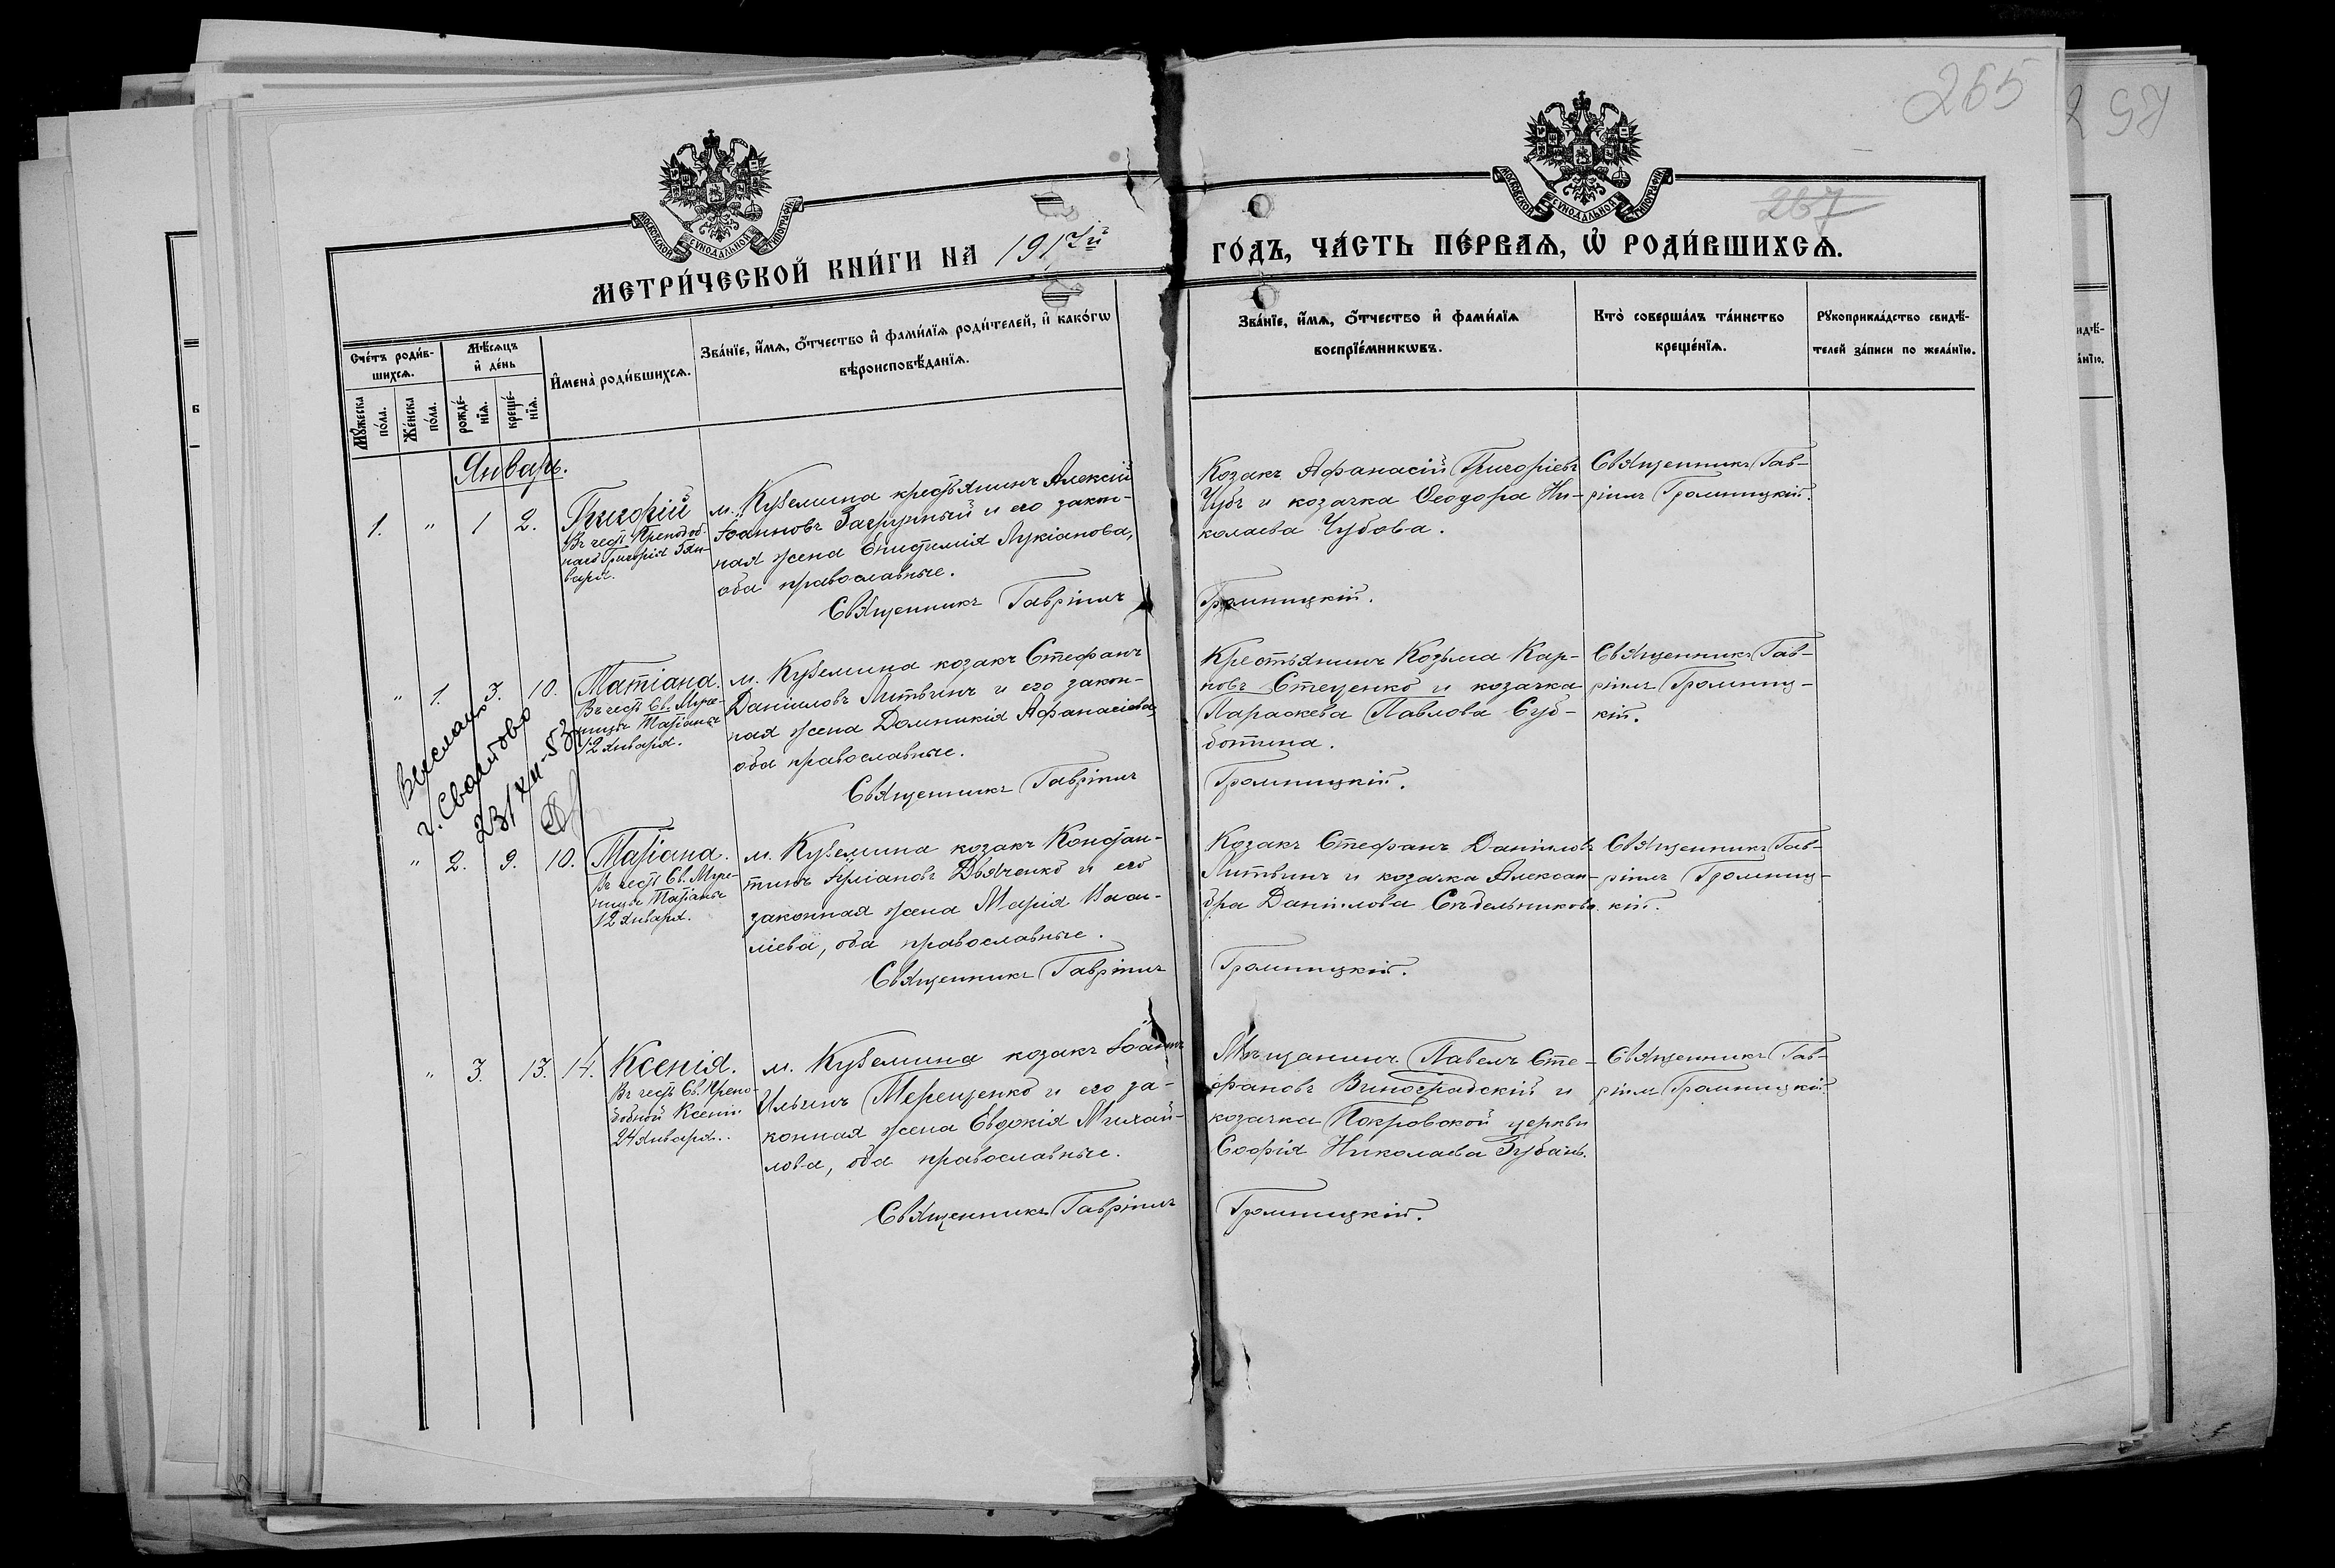 265
297
267
МОСКОВСКОЙ СУНОДАЛЬНОЙ ТИПОГРАФІИ
МОСКОВСКОЙ СУНОДАЛЬНОЙ ТИПОГРАФІИ
МЕТРИ́ЧЕСКОЙ КНИ́ГИ НА 1917й ГО́ДЪ, ЧА́СТЬ ПЕ́РВАѦ, Ѡ҆ РОДИ́ВШИХСѦ.
Сче́тъ роди́в-
шихсѧ.
Мꙋ́жеска
по́ла.
Же́нска
по́ла.
Мѣ́сѧцъ
и҆ де́нь
рожде́-
нїѧ.
креще́-
нїѧ.
И҆мена̀ роди́вшихсѧ.
Зва́нїе, и҆́мѧ, ѻ҆́тчество и҆ фами́лїѧ роди́телей, и҆ како́гѡ
вѣроисповѣ́данїѧ.
Зва́нїе, и҆́мѧ, ѻ҆́тчество и҆ фами́лїѧ
воспрїе́мникѡвъ.
Кто̀ соверша́лъ та́инство
креще́нїѧ.
Рꙋкоприкла́дство свидѣ́-
телей за́писи по жела́нїю.
Январь.
1. " 1 2.
Григорій
Въ честь Преподоб-
наго Григорія 5 Ян-
варя.
м. Куземина крестьянинъ Алексій
Іоанновъ Загрунный и его закон-
ная жена Епистимія Лукіанова,
оба православные.
Священникъ Гавріилъ Громницкій.
Козакъ Афанасій Григоріевъ
Чубъ и козачка Ѳеодора Ни-
колаева Чубова.
Священникъ Гав-
ріилъ Громницкій.
" 1. 3. 10.
Татіана.
Въ честь Св. Муче-
ницы Татіаны
12 января.
м. Куземина козакъ Стефанъ
Даніиловъ Литвинъ и его закон-
ная жена Домникія Афанасіева,
оба православные.
Священникъ Гавріилъ Громницкій.
Крестьянинъ Козьма Кар-
повъ Стеценко и козачка
Параскева Павлова Суб-
ботина.
Священникъ Гав-
ріилъ Громниц-
кій.
Выслано
г. Сватово
231 XII-53
" 2. 9. 10.
Татіана.
Въ честь Св. Муче-
ницы Татіаны
12 января.
м. Куземина козакъ Констан-
тинъ Іуліановъ Дьяченко и его
законная жена Марія Васи-
ліева, оба православные.
Священникъ Гавріилъ Громницкій.
Козакъ Стефанъ Даніиловъ
Литвинъ и козачка Алексан-
дра Даніилова Сѣдельникова.
Священникъ Гав-
ріилъ Громниц-
кій.
" 3. 13. 14.
Ксенія.
Въ честь Св. Препо-
добной Ксеніи
24 января.
м. Куземина козакъ Іоаннъ
Ильинъ Терещенко и его за-
конная жена Евдокія Михай-
лова, оба православные.
Священникъ Гавріилъ Громницкій.
Мѣщанинъ Павелъ Сте-
фановъ Виноградскій и
козачка Покровской церкви
Софія Николаева Зубань.
Священникъ Гав-
ріилъ Громницкій.